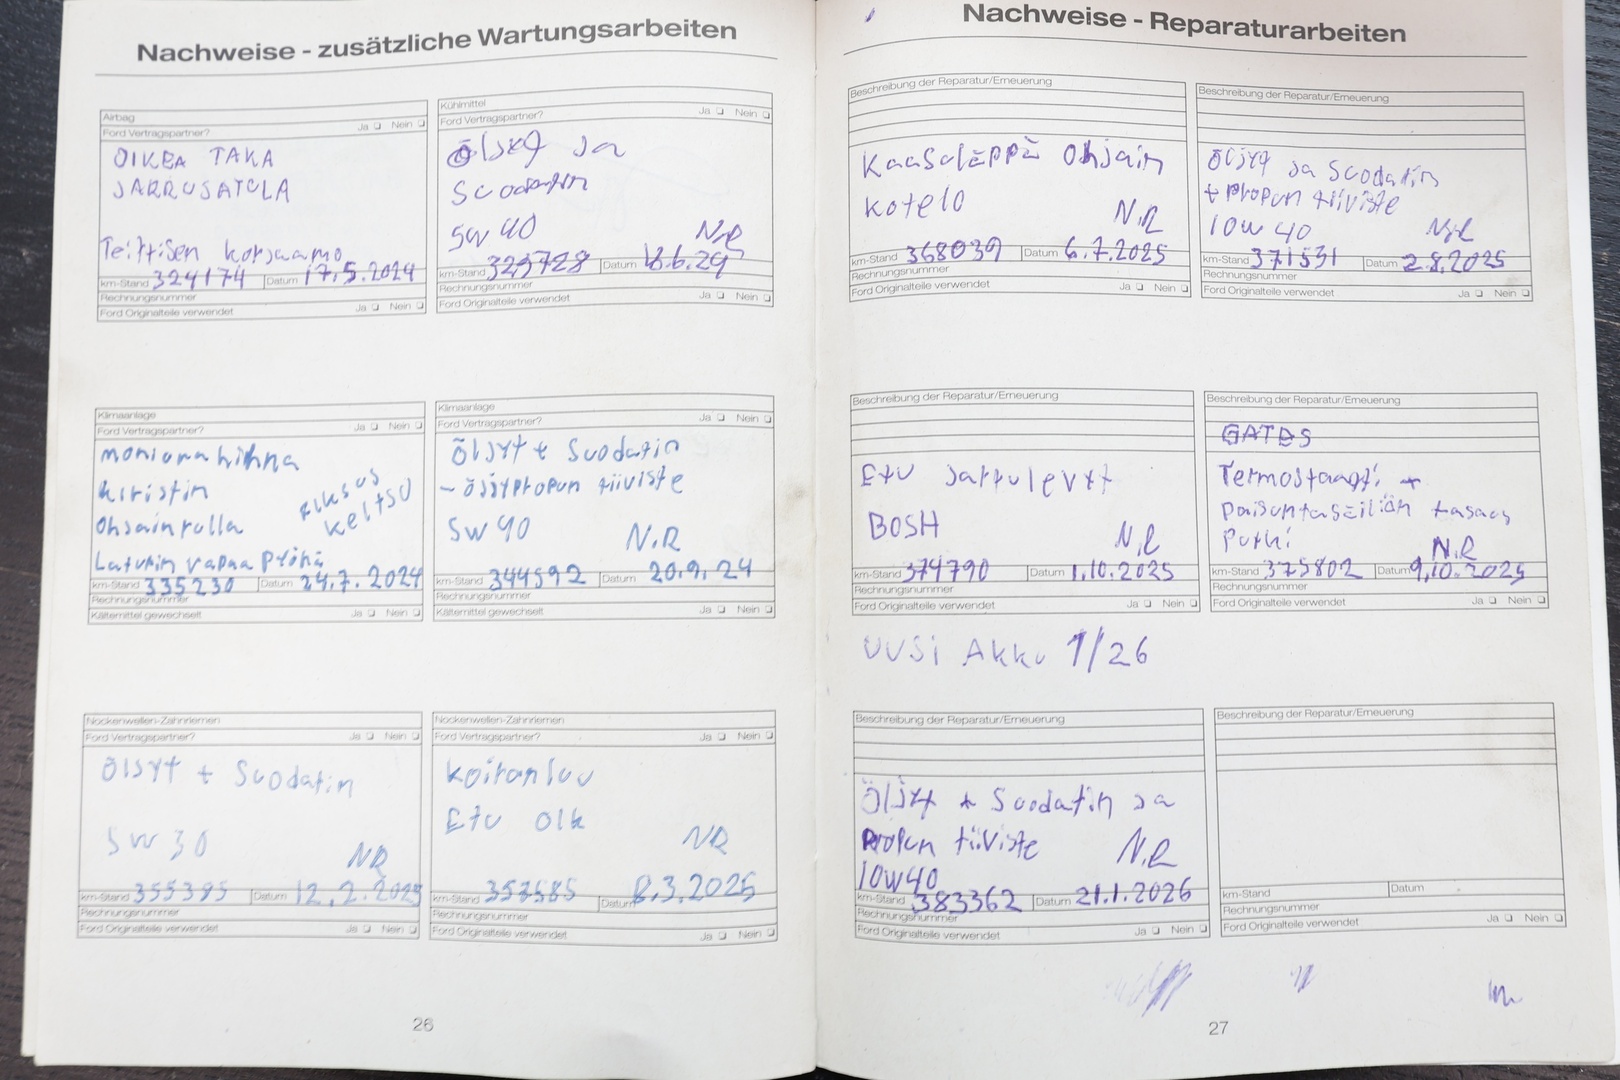 Nachweise - zusätzliche Wartungsarbeiten
Airbag
Ford Vertragspartner? Ja Nein
OIKEA TAKA
JARRUSATULA
Teittisen korjaamo
km-Stand 324174 Datum 17.5.2024
Rechnungsnummer
Ford Originalteile verwendet Ja Nein
Kühlmittel
Ford Vertragspartner? Ja Nein
Öljyt ja
Suodatin
5w 40
N.R
km-Stand 329728 Datum 18.6.24
Rechnungsnummer
Ford Originalteile verwendet Ja Nein
Klimaanlage
Ford Vertragspartner? Ja Nein
moniurahihna
kiristin
Ohjainrulla
Laturin vapaa pyörä
km-Stand 335230 Datum 24.7.2024
Rechnungsnummer
Kältemittel gewechselt Ja Nein
Klimaanlage
Ford Vertragspartner? Ja Nein
Öljyt + Suodatin
- öljypropun tiiviste
5w 40 N.R
km-Stand 344592 Datum 20.9.24
Rechnungsnummer
Kältemittel gewechselt Ja Nein
Nockenwellen-Zahnriemen
Ford Vertragspartner? Ja Nein
Öljyt + Suodatin
5w 30
NR
km-Stand 355395 Datum 12.2.2025
Rechnungsnummer
Ford Originalteile verwendet Ja Nein
Nockenwellen-Zahnriemen
Ford Vertragspartner? Ja Nein
Koiranluu
Etu oik
NR
km-Stand 357585 Datum 8.3.2025
Rechnungsnummer
Ford Originalteile verwendet Ja Nein
26
Nachweise - Reparaturarbeiten
Beschreibung der Reparatur/Erneuerung
Kaasuläppä ohjain
kotelo N.R
km-Stand 368039 Datum 6.7.2025
Rechnungsnummer
Ford Originalteile verwendet Ja Nein
Beschreibung der Reparatur/Erneuerung
Öljyt ja Suodatin
+ propun tiiviste
10w 40 N.R
km-Stand 371531 Datum 2.8.2025
Rechnungsnummer
Ford Originalteile verwendet Ja Nein
Beschreibung der Reparatur/Erneuerung
Etu jarrulevyt
BOSH N.R
km-Stand 374790 Datum 1.10.2025
Rechnungsnummer
Ford Originalteile verwendet Ja Nein
Beschreibung der Reparatur/Erneuerung
GATES
Termostaatti +
paisuntasäiliön tasaus
putki N.R
km-Stand 375802 Datum 9.10.2025
Rechnungsnummer
Ford Originalteile verwendet Ja Nein
UUSi Akku 1/26
Beschreibung der Reparatur/Erneuerung
Öljyt + Suodatin ja
propun tiiviste N.R
10w40
km-Stand 383362 Datum 21.1.2026
Rechnungsnummer
Ford Originalteile verwendet Ja Nein
Beschreibung der Reparatur/Erneuerung
km-Stand Datum
Rechnungsnummer
Ford Originalteile verwendet Ja Nein
27